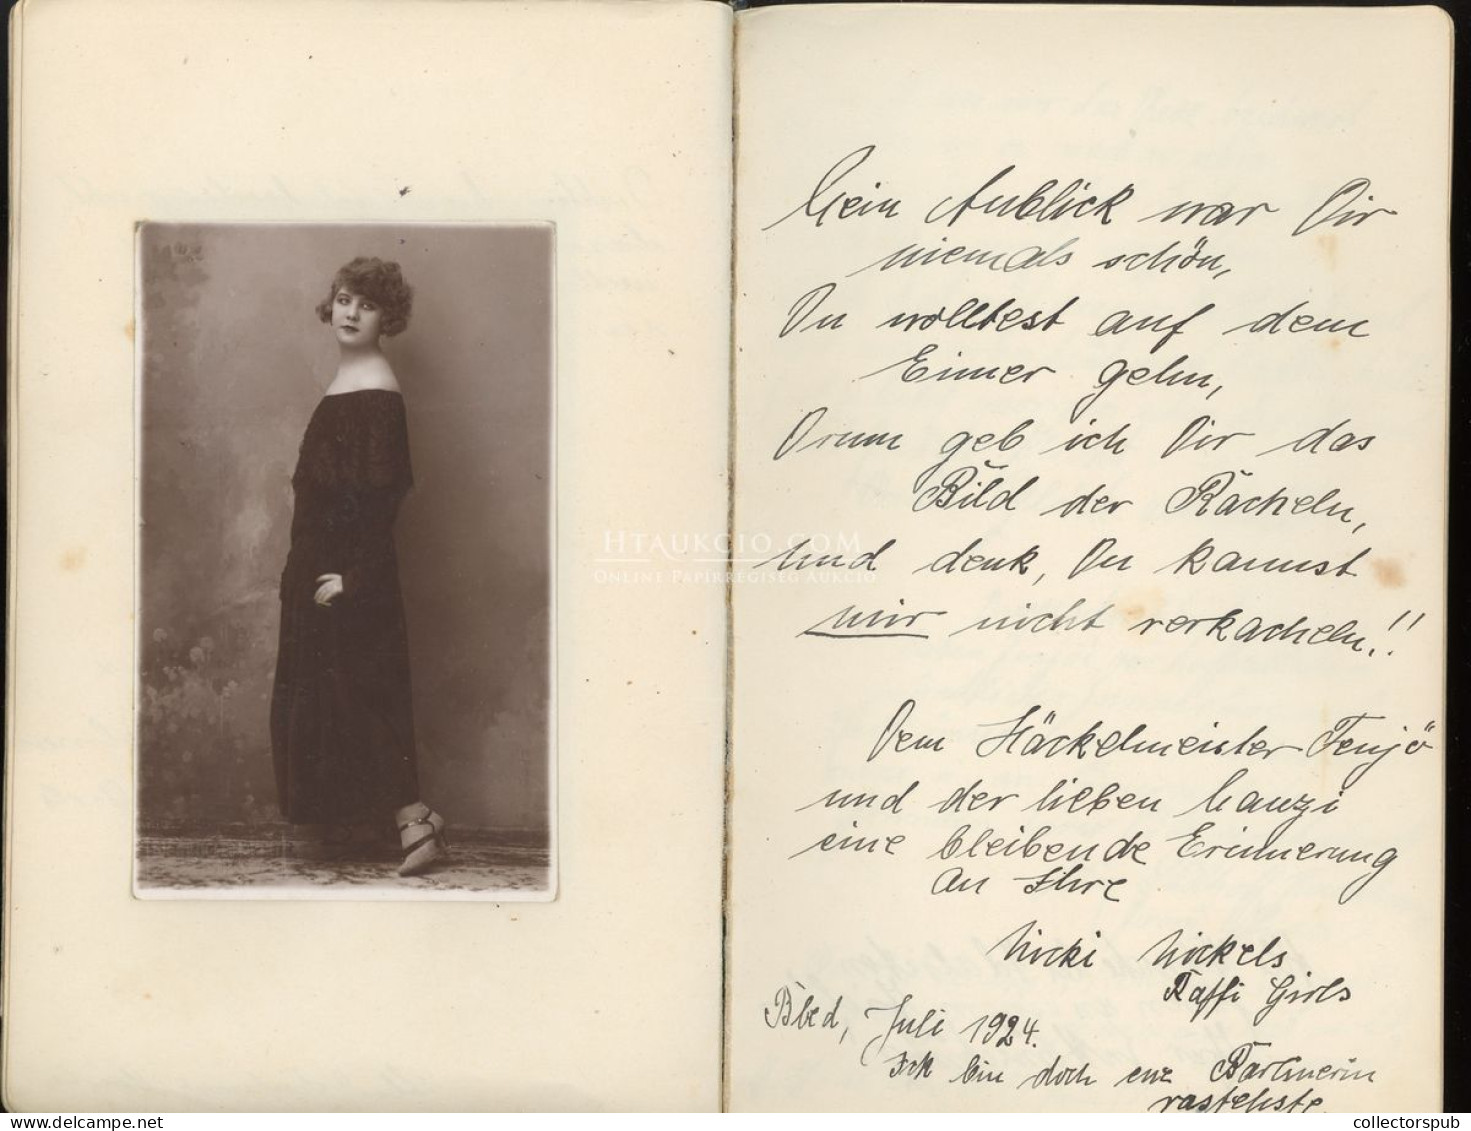 Mein Anblick war Dir
niemals schön,
Du wolltest auf dem
Eimer gehn,
Drum geb ich Dir das
Bild der Kacheln,
Und denk, Du kannst
mir nicht verkacheln!!
Dem Häckelmeister Fenjö
und der lieben Hanzi
eine bleibende Erinnerung
an Ihre
Nicki Nickels
Taffi Girls
Bled, Juli 1924.
Ick bin doch enz Barlinerin
rastehste
HTAUKCIO.COM
ONLINE PAPÍRRÉGISÉG AUKCIÓ
collectorspub